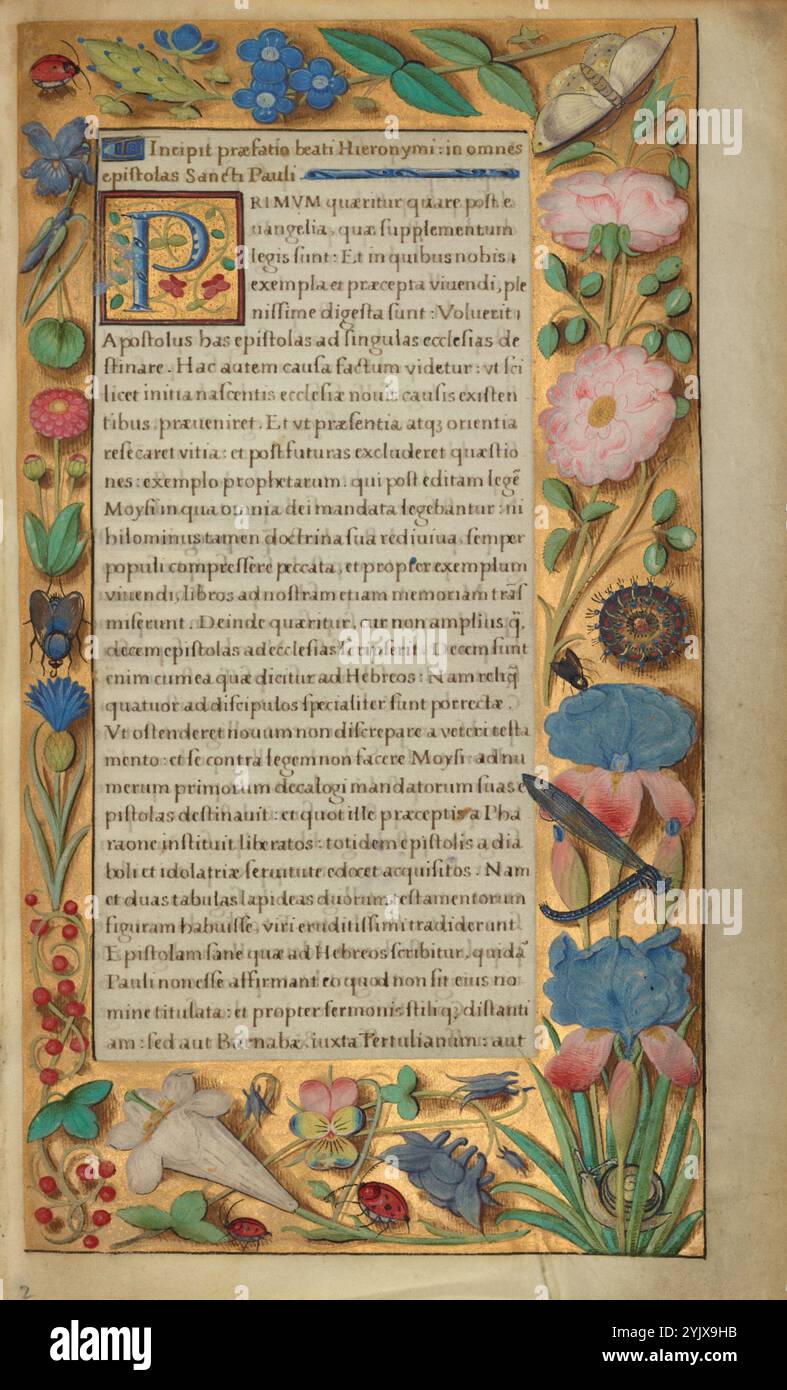 Incipit præfatio beati Hieronymi: in omnes
epistolas Sancti Pauli.
PRIMVM quæritur quare post e
uangelia, quæ supplementum
legis sunt: Et in quibus nobis
exempla et præcepta viuendi, ple
nissime digesta sunt: Voluerit
Apostolus has epistolas ad singulas ecclesias de
stinare. Hac autem causa factum videtur: vt sci
licet initia nascentis ecclesiæ nouis causis existen
tibus præueniret. Et vt præsentia atq; orientia
resecaret vitia: et post futuras excluderet quæstio
nes: exemplo prophetarum. qui post editam legẽ
Moysi in qua omnia dei mandata legebantur: ni
hilominus tamen doctrina sua rediuiua, semper
populi compressere peccata, et propter exemplum
viuendi, libros ad nostram etiam memoriam trãs
miserunt. Deinde quæritur, cur non amplius q̃
decem epistolas ad ecclesias scripserit. Decem sunt
enim cum ea quæ dicitur ad Hebreos: Nam reliq̃
quatuor ad discipulos specialiter sunt porrectæ.
Vt ostenderet nouum non discrepare a veteri testa
mento: et se contra legem non facere Moysi: ad nu
merum primorum decalogi mandatorum suas e
pistolas destinauit: et quot ille præceptis a Pha
raone instituit liberatos: totidem epistolis a dia
boli et idolatriæ seruitute edocet acquisitos: Nam
et duas tabulas lapideas duorum testamentorum
figuram habuisse, viri eruditissimi tradiderunt.
Epistolam sane quæ ad Hebreos scribitur, quidã
Pauli non esse affirmant eo quod non sit eius no
mine titulata: et propter sermonis stiliq; distanti
am: sed aut Barnabæ iuxta Tertulianum: aut
2
alamy
Image ID: 2YJX9HB
www.alamy.com